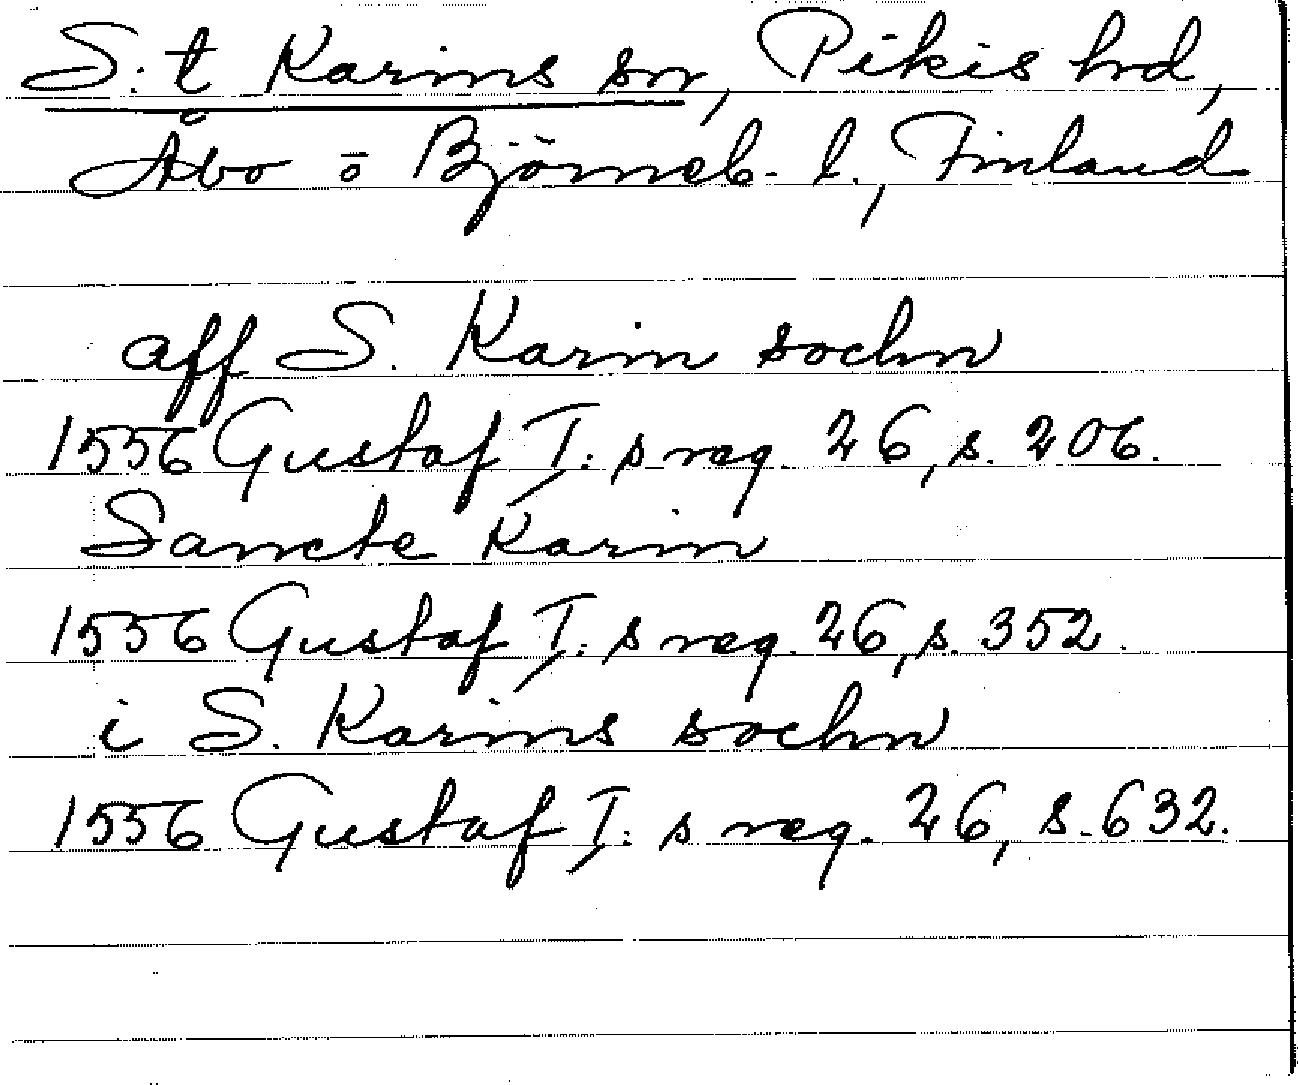 S:t Karins sn, Pikis hd,
Åbo o Björneb. l., Finland
aff S. Karin sochn
1556 Gustaf I:s reg. 26, s. 206.
Sancte Karin
1556 Gustaf I:s reg. 26, s. 352.
i S. Karins sochn
1556 Gustaf I:s reg. 26, s. 632.